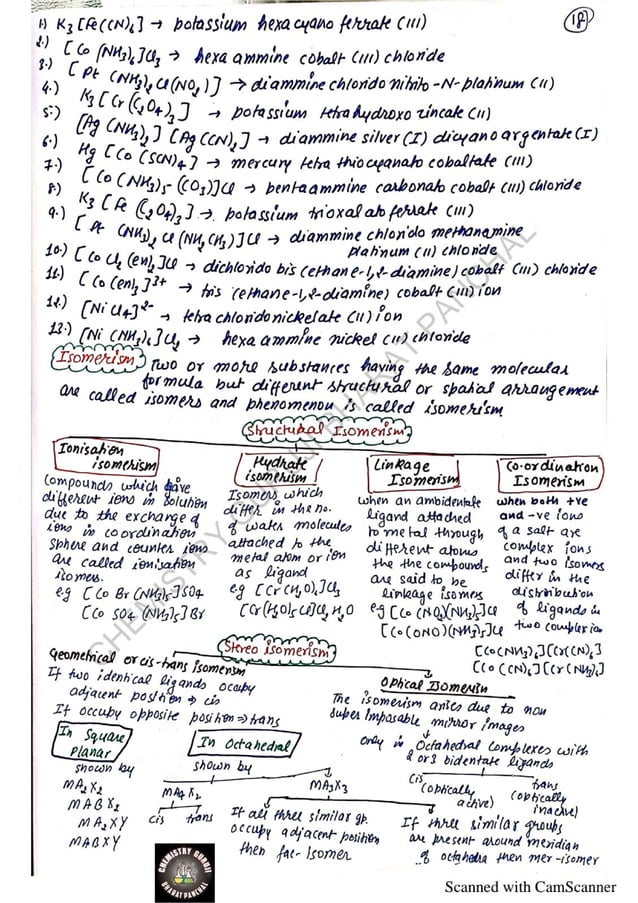 18
1) K3 [Fe(CN)6] → potassium hexacyano ferrate (III)
2.) [Co (NH3)6]Cl3 → hexa ammine cobalt (III) chloride
3.) [Pt (NH3)2 Cl(NO2)] → diammine chlorido nitrito-N-platinum (II)
4.) K3[Cr(C2O4)3] → potassium tetrahydroxo zincate (II)
5.) [Ag (NH3)2] [Ag(CN)2] → diammine silver (I) dicyano argentate (I)
6.) Hg [Co (SCN)4] → mercury tetra thiocyanato cobaltate (III)
7.) [Co(NH3)5-(CO3)]Cl → pentaammine carbonato cobalt (III) chloride
8.) K3 [Fe (C2O4)3] → potassium trioxalato ferrate (III)
9.) [Pt (NH3)2 Cl (NH2CH3)]Cl → diammine chlorido methanamine
platinum (II) chloride
10.) [Co Cl2 (en)2]Cl → dichlorido bis (ethane-1,2-diamine) cobalt (III) chloride
11.) [Co(en)3]3+ → tris (ethane-1,2-diamine) cobalt (III) ion
12.) [NiCl4]2- → tetra chlorido nickelate (II) ion
13.) [Ni (NH3)6]Cl2 → hexa ammine nickel (II) chloride
Isomerism Two or more substances having the same molecular
formula but different structural or spatial arrangement
are called isomers and phenomenon is called isomerism
Structural Isomerism
Ionisation
isomerism
Compounds which give
different ions in solution
due to the exchange of
ions in coordination
sphere and counter ions
are called ionisation
isomers.
eg [Co Br (NH3)5]SO4
[Co SO4 (NH3)5] Br
Hydrate
isomerism
Isomers which
differ in the no.
of water molecules
attached to the
metal atom or ion
as ligand
e.g [Cr(H2O)6]Cl3
[Cr(H2O)5Cl]Cl2 H2O
Linkage
Isomerism
when an ambidentate
ligand attached
to metal through
different atoms
the the compounds
are said to be
linkage isomers
eg [Co(NO2)(NH3)5]Cl
[Co(ONO)(NH3)5]Cl
Co-ordination
Isomerism
when both +ve
and -ve ions
of a salt are
complex ions
and two isomers
differ in the
distribution
of ligands in
two complex ion
[Co(NH3)6][Cr(CN)6]
[Co(CN)6][Cr(NH3)6]
Stereo isomerism
Geometrical or cis-trans Isomerism
If two identical ligands occupy
adjacent position ⇒ cis
If occupy opposite position ⇒ trans
In Square
planar
shown by
MA2X2
MABX2
MA2XY
MABXY
In octahedral
shown by
MA4X2
cis trans
MA3X3
If all three similar gp.
occupy adjacent position
then fac-Isomer
If three similar groups
are present around meridian
of octahedra then mer-isomer
Optical Isomerism
The isomerism arises due to non
super imposable mirror images
Only in Octahedral Complexes with
2 or 3 bidentate ligands
cis
(optically
active)
trans
(optically
inactive)
CHEMISTRY GURUJI BHARAT PANCHAL
CHEMISTRY GURUJI
BHARAT PANCHAL
Scanned with CamScanner